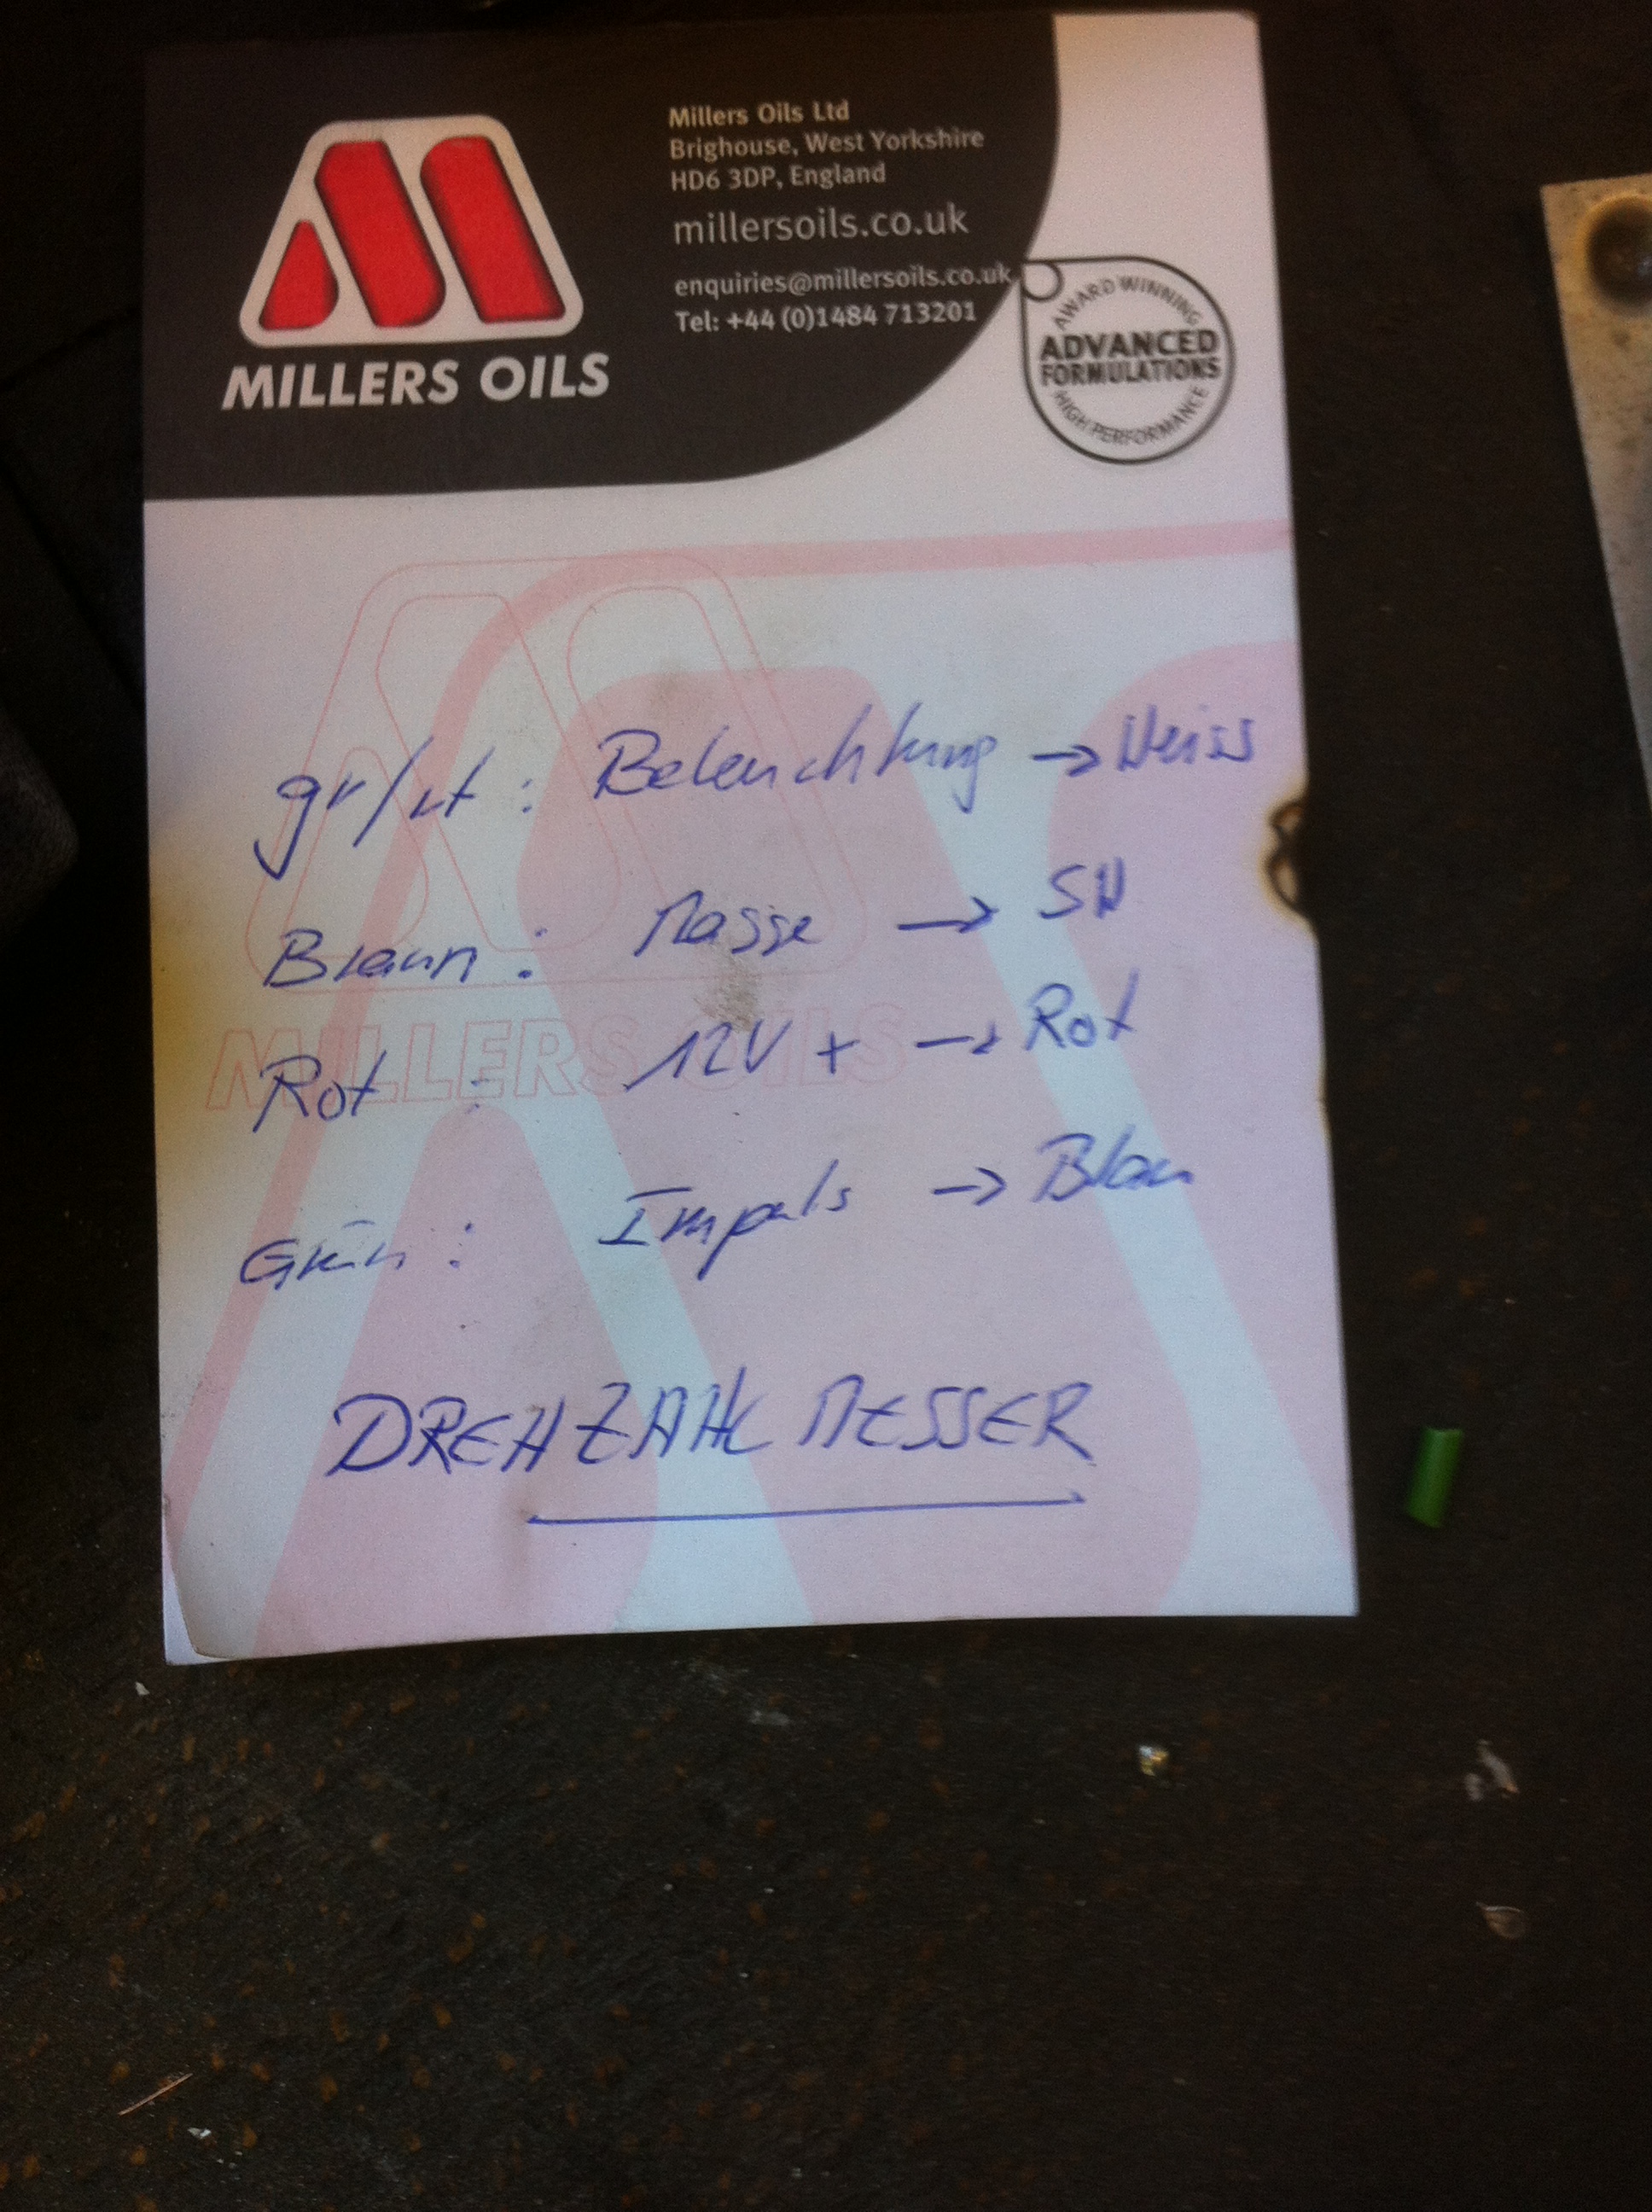 Millers Oils Ltd
Brighouse, West Yorkshire
HD6 3DP, England
millersoils.co.uk
enquiries@millersoils.co.uk
Tel: +44 (0)1484 713201
MILLERS OILS
AWARD WINNING
ADVANCED
FORMULATIONS
HIGH PERFORMANCE
gr/rt : Beleuchtung → Weiss
Braun : Masse → SW
MILLERS OILS
Rot : 12V + → Rot
Grün : Impuls → Blau
DREHZAHLMESSER